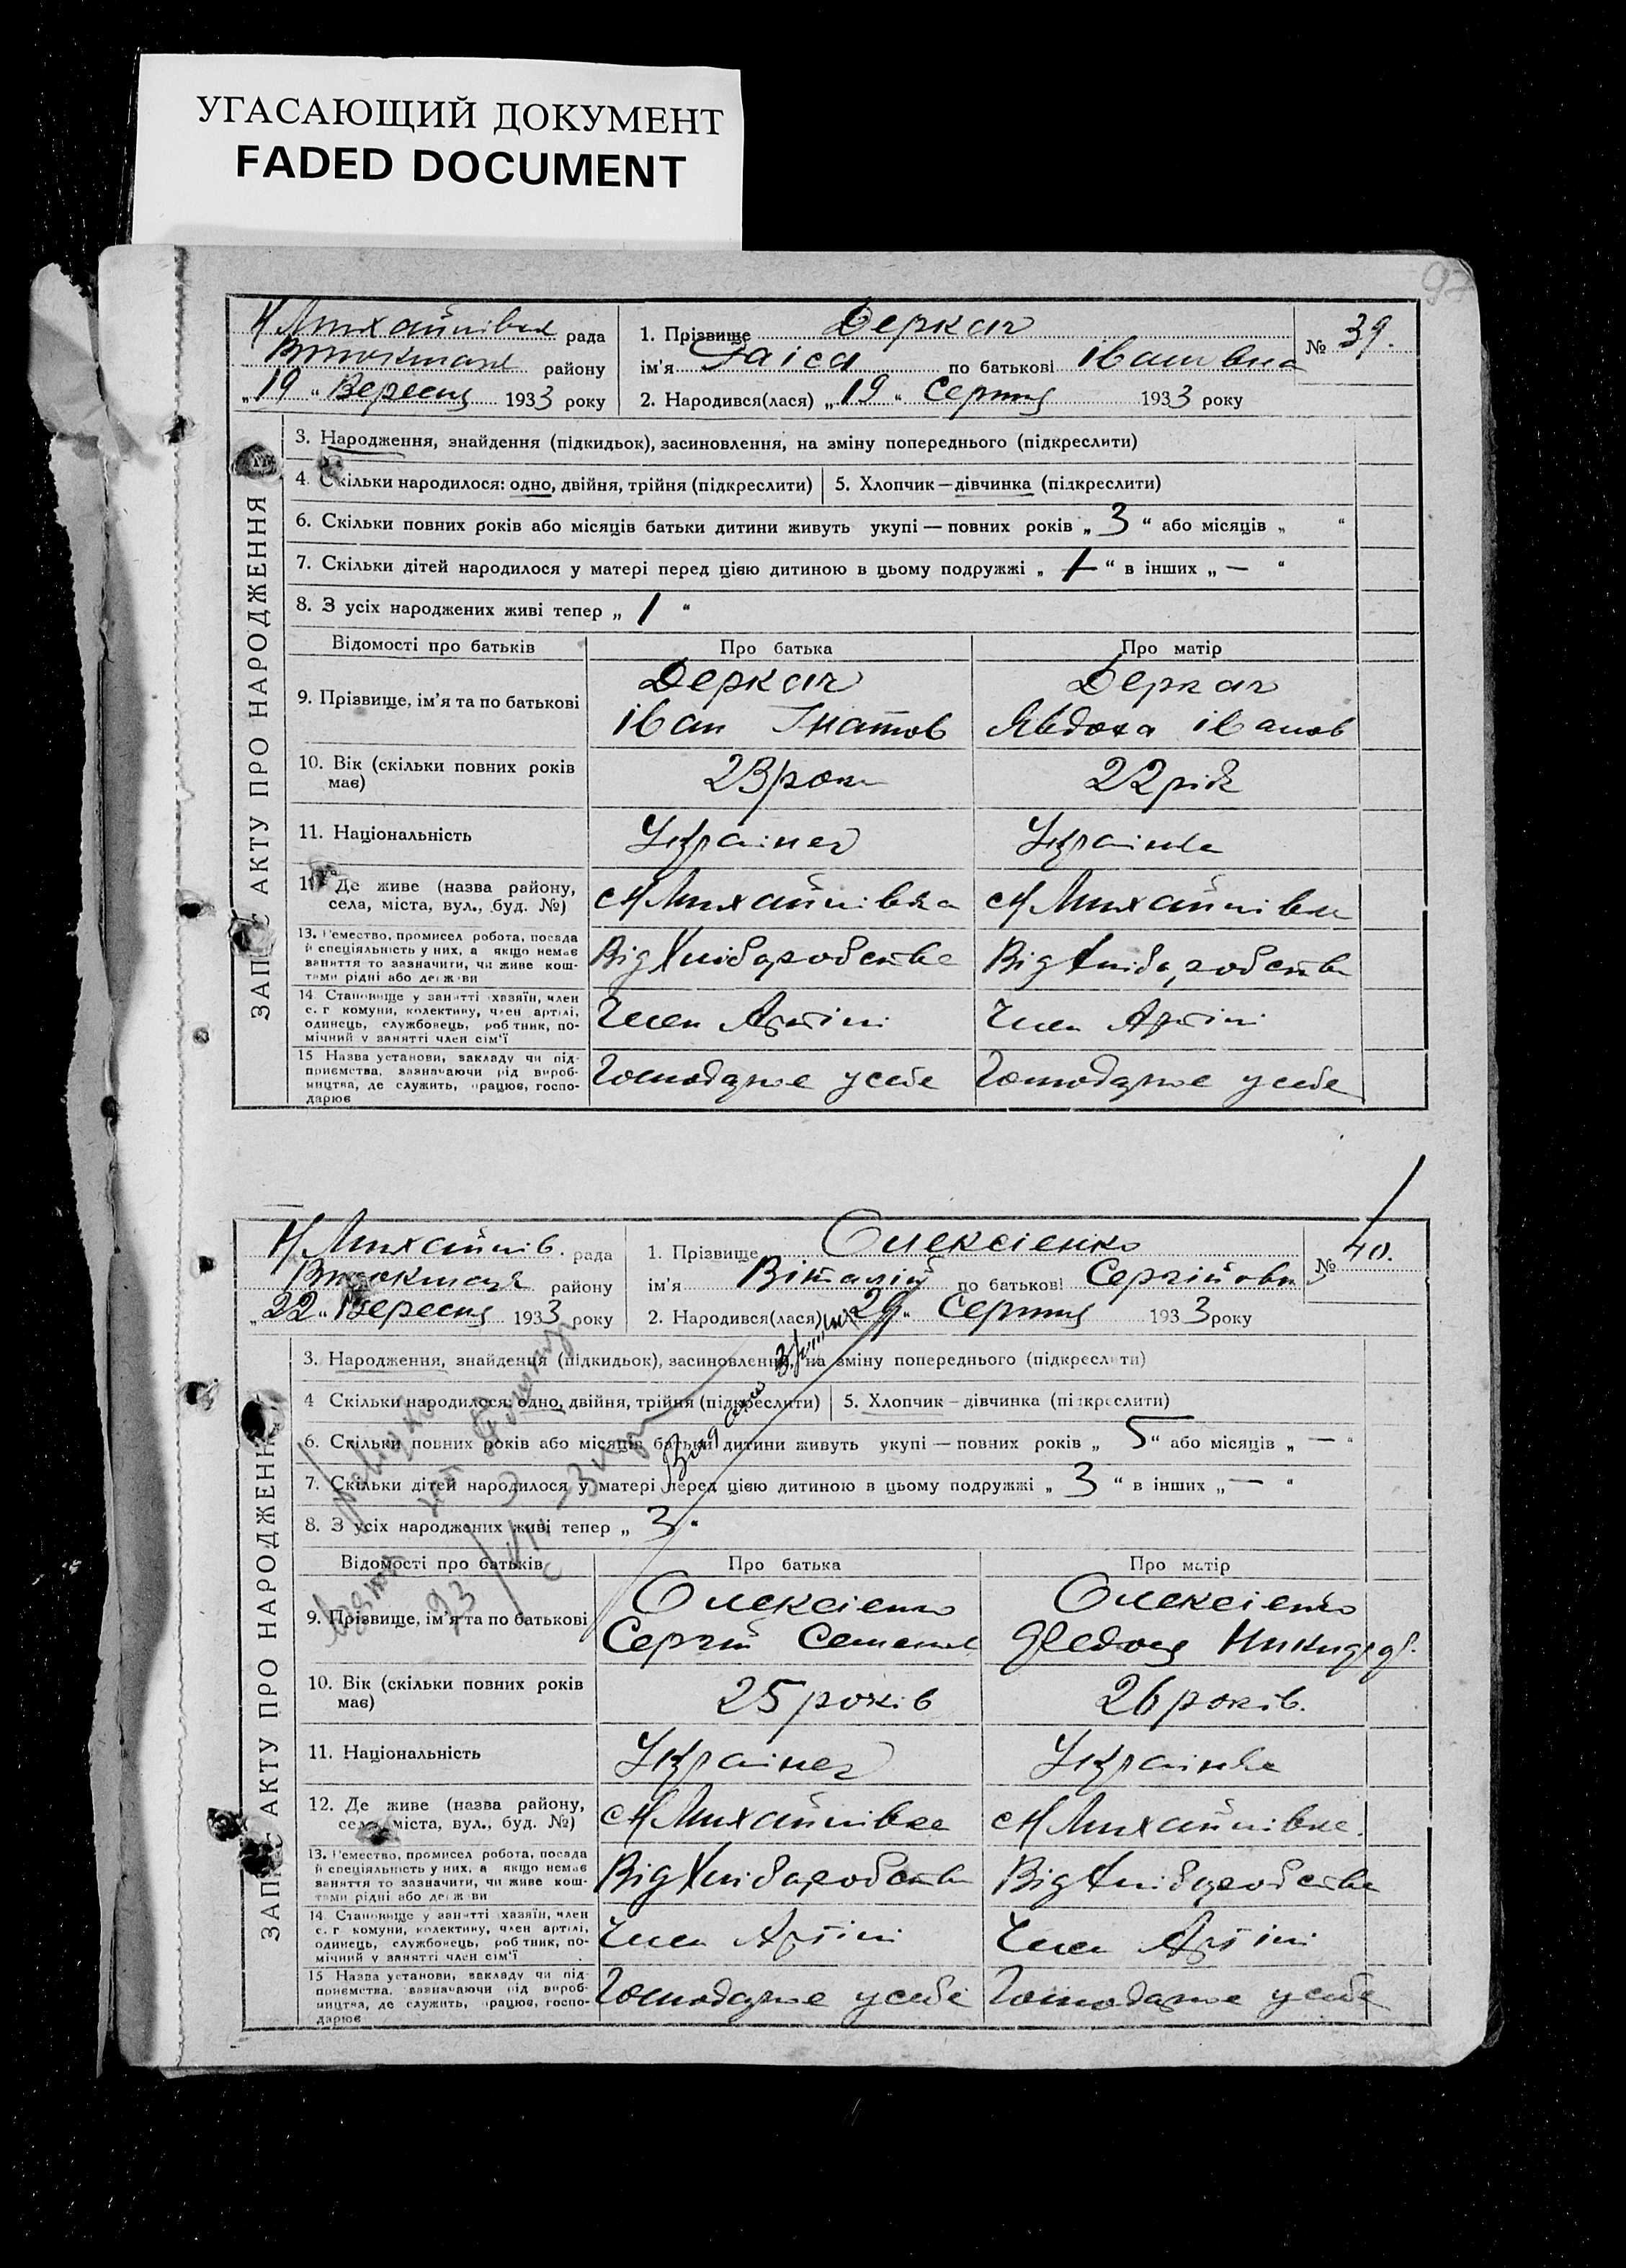 УГАСАЮЩИЙ ДОКУМЕНТ
FADED DOCUMENT
97
Н Михайлівка рада
району
„19“ Вересня 1933 року
1. Прізвище Деркач
ім'я Раіса по батькові Івановна
№ 39.
2. Народився(лася) „19“ Серпня 1933 року
ЗАПИС АКТУ ПРО НАРОДЖЕННЯ
3. Народження, знайдення (підкидьок), засиновлення, на зміну попереднього (підкреслити)
4. Скільки народилося: одно, двійня, трійня (підкреслити) 5. Хлопчик — дівчинка (підкреслити)
6. Скільки повних років або місяців батьки дитини живуть укупі — повних років „ 3 “ або місяців „ “
7. Скільки дітей народилося у матері перед цією дитиною в цьому подружжі „ “ в інших „ — “
8. З усіх народжених живі тепер „ 1 “
Відомості про батьків Про батька Про матір
9. Прізвище, ім'я та по батькові Деркач Деркач
Іван Гнатов Явдоха Іванов
10. Вік (скільки повних років має) 23 роки 22 рік
11. Національність Украінец Украінка
12. Де живе (назва району, села, міста, вул., буд. №) с Н Михайлівка с Н Михайлівка
13. Ремество, промисел робота, посада й спеціяльність у них, а якщо немає заняття то зазначити, чи живе коштами рідні або держави Від Хлібаробства Від Хлібаробства
14. Становище у занятті хазяїн, член с. г комуни, колективу, член артілі, одинець, службовець, робтник, помічний у занятті член сім'ї Член Артіли Член Артіли
15 Назва установи, закладу чи підприємства, зазначаючи рід виробництва, де служить, працює, господарює Господарює у себе Господарює у себе
Н Михайлів. рада
району
„22“ Вересня 1933 року
1. Прізвище Олексіенко
ім'я Віталій по батькові Сергійови
№ 40.
2. Народився(лася) „29“ Серпня 1933 року
ЗАПИС АКТУ ПРО НАРОДЖЕННЯ
3. Народження, знайдення (підкидьок), засиновлення, на зміну попереднього (підкреслити)
4 Скільки народилося: одно, двійня, трійня (підкреслити) 5. Хлопчик — дівчинка (підкреслити)
6. Скільки повних років або місяців батьки дитини живуть укупі — повних років „ 5 “ або місяців „ — “
7. Скільки дітей народилося у матері перед цією дитиною в цьому подружжі „ 3 “ в інших „ — “
8. З усіх народжених живі тепер „ 3 “
Відомості про батьків Про батька Про матір
9. Прізвище, ім'я та по батькові Олексіенко Олексіенко
Сергій Семенов
10. Вік (скільки повних років має) 25 років 26 років.
11. Національність Украінец Украінка
12. Де живе (назва району, села, міста, вул., буд. №) с Н Михайлівка с Н Михайлівка.
13. Ремество, промисел робота, посада й спеціяльність у них, а якщо немає заняття то зазначити, чи живе коштами рідні або держави Від Хлібаробства Від Хлібаробства
14. Становище у занятті хазяїн, член с. г комуни, колективу, член артілі, одинець, службовець, робтник, помічний у занятті член сім'ї Член Артіли Член Артіли
15 Назва установи, закладу чи підприємства, зазначаючи рід виробництва, де служить, працює, господарює Господарює у себе Господарює у себе